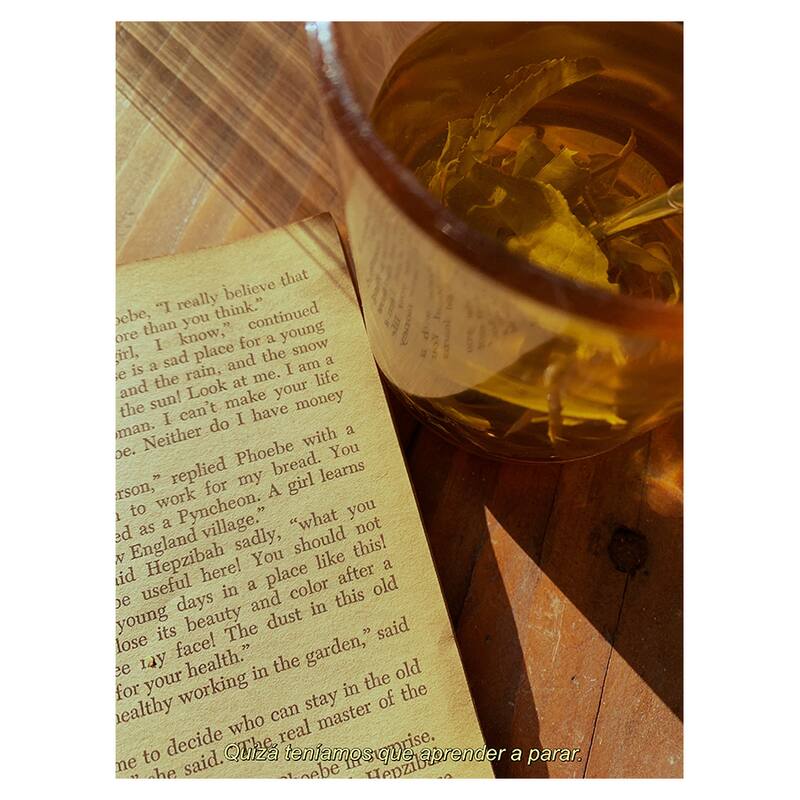 oebe, “I really believe that
ore than you think.”
girl, I know,” continued
se is a sad place for a young
and the rain, and the snow
the sun! Look at me. I am a
oman. I can’t make your life
be. Neither do I have money
erson,” replied Phoebe with a
n to work for my bread. You
ed as a Pyncheon. A girl learns
w England village.”
aid Hepzibah sadly, “what you
be useful here! You should not
young days in a place like this!
lose its beauty and color after a
ee my face! The dust in this old
for your health.”
healthy working in the garden,” said
me to decide who can stay in the old
” she said. “The real master of the
Phoebe in surprise.
Hepzibah
Quizá teníamos que aprender a parar.